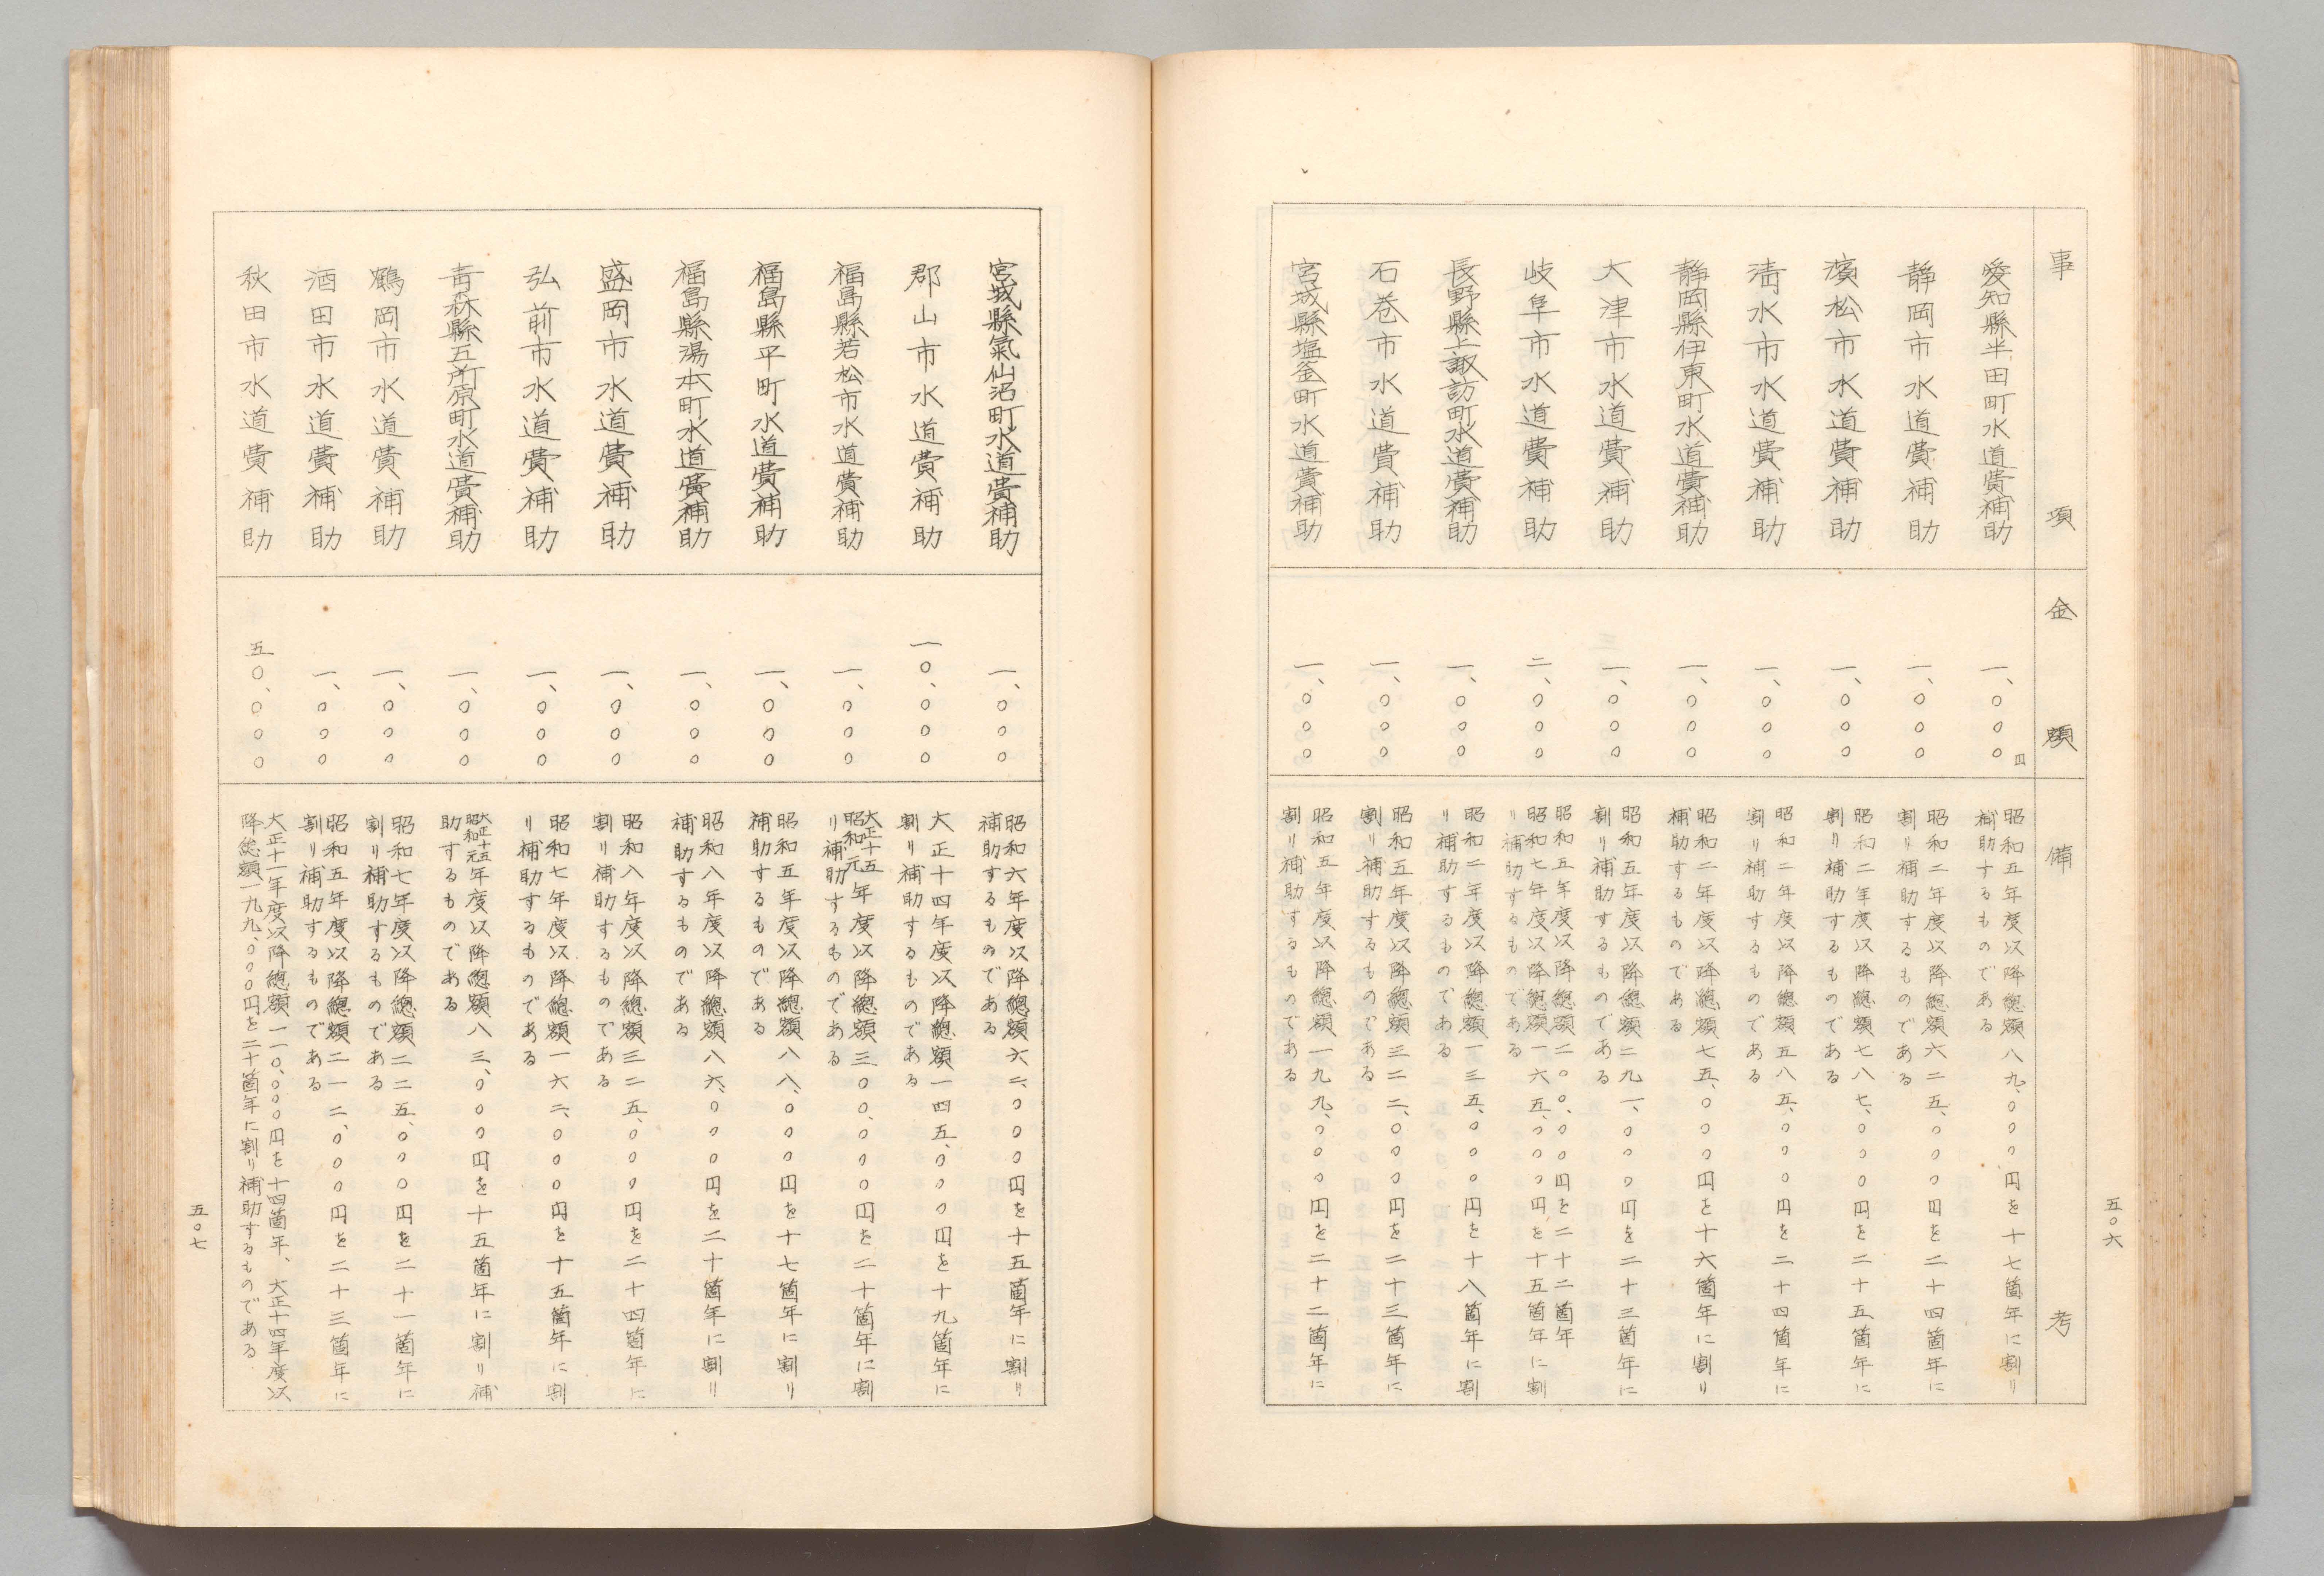 事項 金額 備考
愛知縣半田町水道費補助 一、〇〇〇円 昭和五年度以降總額八九、〇〇〇円を十七箇年に割り
補助するものである
静岡市水道費補助 一、〇〇〇 昭和二年度以降總額六二五、〇〇〇円を二十四箇年に
割り補助するものである
濱松市水道費補助 一、〇〇〇 昭和二年度以降總額七八七、〇〇〇円を二十五箇年に
割り補助するものである
淸水市水道費補助 一、〇〇〇 昭和二年度以降總額五八五、〇〇〇円を二十四箇年に
割り補助するものである
静岡縣伊東町水道費補助 一、〇〇〇 昭和二年度以降總額七五、〇〇〇円を十六箇年に割り
補助するものである
大津市水道費補助 一、〇〇〇 昭和五年度以降總額二九一、〇〇〇円を二十三箇年に
割り補助するものである
岐阜市水道費補助 二、〇〇〇 昭和五年度以降總額二〇〇、〇〇〇円を二十二箇年
昭和七年度以降總額一六五、〇〇〇円を十五箇年に割
り補助するものである
長野縣上諏訪町水道費補助 一、〇〇〇 昭和二年度以降總額一三五、〇〇〇円を十八箇年に割
り補助するものである
石巻市水道費補助 一、〇〇〇 昭和五年度以降總額三二二、〇〇〇円を二十三箇年に
割り補助するものである
宮城縣塩釜町水道費補助 一、〇〇〇 昭和五年度以降總額一九九、〇〇〇円を二十二箇年に
割り補助するものである
五〇六
宮城縣氣仙沼町水道費補助 一、〇〇〇 昭和六年度以降總額六二、〇〇〇円を十五箇年に割り
補助するものである
郡山市水道費補助 一〇、〇〇〇 大正十四年度以降總額一四五、〇〇〇円を十九箇年に
割り補助するものである
福島縣若松市水道費補助 一、〇〇〇 大正十五昭和元年度以降總額三〇〇、〇〇〇円を二十箇年に割
り補助するものである
福島縣平町水道費補助 一、〇〇〇 昭和五年度以降總額八八、〇〇〇円を十七箇年に割り
補助するものである
福島縣湯本町水道費補助 一、〇〇〇 昭和八年度以降總額八六、〇〇〇円を二十箇年に割り
補助するものである
盛岡市水道費補助 一、〇〇〇 昭和八年度以降總額三二五、〇〇〇円を二十四箇年に
割り補助するものである
弘前市水道費補助 一、〇〇〇 昭和七年度以降總額一六二、〇〇〇円を十五箇年に割
り補助するものである
靑森縣五所原町水道費補助 一、〇〇〇 大正十五昭和元年度以降總額八三、〇〇〇円を十五箇年に割り補
助するものである
鶴岡市水道費補助 一、〇〇〇 昭和七年度以降總額二二五、〇〇〇円を二十一箇年に
割り補助するものである
酒田市水道費補助 一、〇〇〇 昭和五年度以降總額二一二、〇〇〇円を二十三箇年に
割り補助するものである
秋田市水道費補助 五〇、〇〇〇 大正十一年度以降總額一一〇、〇〇〇円を十四箇年、大正十四年度以
降總額一九九、〇〇〇円を二十箇年に割り補助するものである
五〇七